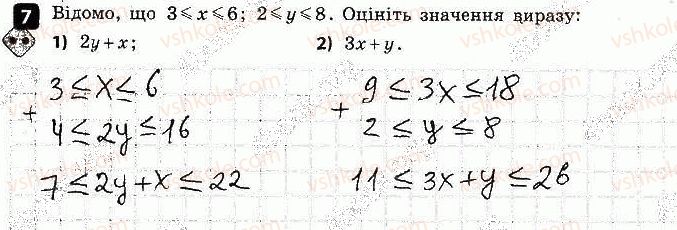 7 Відомо, що 3 ⩽ x ⩽ 6; 2 ⩽ y ⩽ 8. Оцініть значення виразу:
1) 2y + x; 2) 3x + y.
3 ≤ x ≤ 6
+
4 ≤ 2y ≤ 16
7 ≤ 2y + x ≤ 22
9 ≤ 3x ≤ 18
+
2 ≤ y ≤ 8
11 ≤ 3x + y ≤ 26